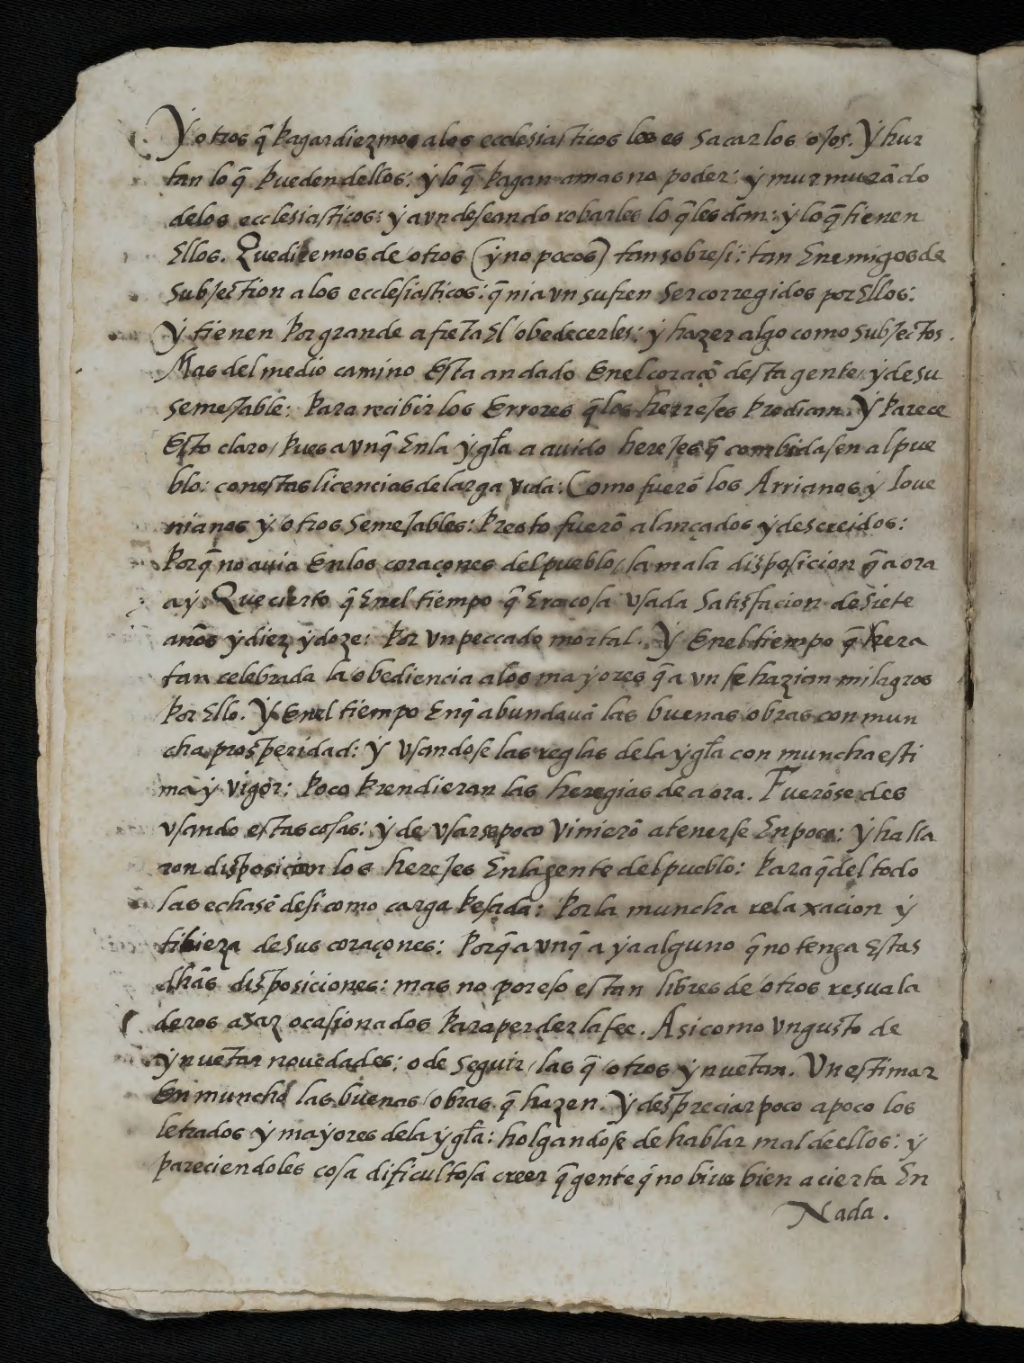 Y otros q̃ pagar diezmos a los ecclesiasticos les es sacar los ojos. Y hur
tan lo q̃ pueden dellos: y lo q̃ pagan a mas no poder: y murmurãdo
de los ecclesiasticos: y aun deseando robarles lo q̃ les dan: y lo q̃ tienen
Ellos. Que diremos de otros (y no pocos) tan sobre si: tan Enemigos de
Subjection a los ecclesiasticos: q̃ ni aun sufren ser corregidos por Ellos:
Y tienen por grande afreta El obedecerles: y hazer algo como subjectos.
Mas del medio camino Esta andado En el coraçõ desta gente: y de su
semejable: Para recibir los Errores q̃ los herejes predican. Y Parece
Esto claro, Pues aunq̃ En la ygl̃a a auido herejes q̃ combidasen al pue
blo: con estas licencias de larga vida: Como fuerõ los Arrianos y Ioue
nianos y otros semejables: Presto fuerõ alançados y descreidos:
Porq̃ no auia En los coraçones del pueblo, la mala disposicion q̃ aora
ay. Que cierto q̃ En el tiempo q̃ Era cosa vsada Satisfacion de siete
años y diez y doze: Por vn peccado mortal. Y En el tiempo q̃ hera
tan celebrada la obediencia a los mayores q̃ aun se hazian milagros
Por Ello. Y En el tiempo En q̃ abundauã las buenas obras con mun
cha prosperidad: Y vsandose las reglas de la ygl̃a con muncha esti
ma y vigor: Poco Prendieran las heregias de aora. Fuerõse des
vsando estas cosas: y de vsarse poco vinierõ a tenerse En poco: y halla
ron disposicion los herejes En la gente del pueblo: Para q̃ del todo
las echasẽ de si como carga Pesada: Por la muncha relaxacion y
tibieza de sus coraçones: Porq̃ aunq̃ aya alguno q̃ no tenga Estas
dhãs disposiciones: mas no por eso estan libres de otros resuala
deros asaz ocasionados Para perder la fee. Asi como vn gusto de
ynuetar nouedades: o de seguir, las q̃ otros ynuetan. Vn estimar
En muncho las buenas obras q̃ hazen. Y despreciar poco a poco los
letrados y mayores de la ygl̃a: holgandose de hablar mal de ellos: y
pareciendoles cosa dificultosa creer q̃ gente q̃ no biue bien acierta En
Nada.